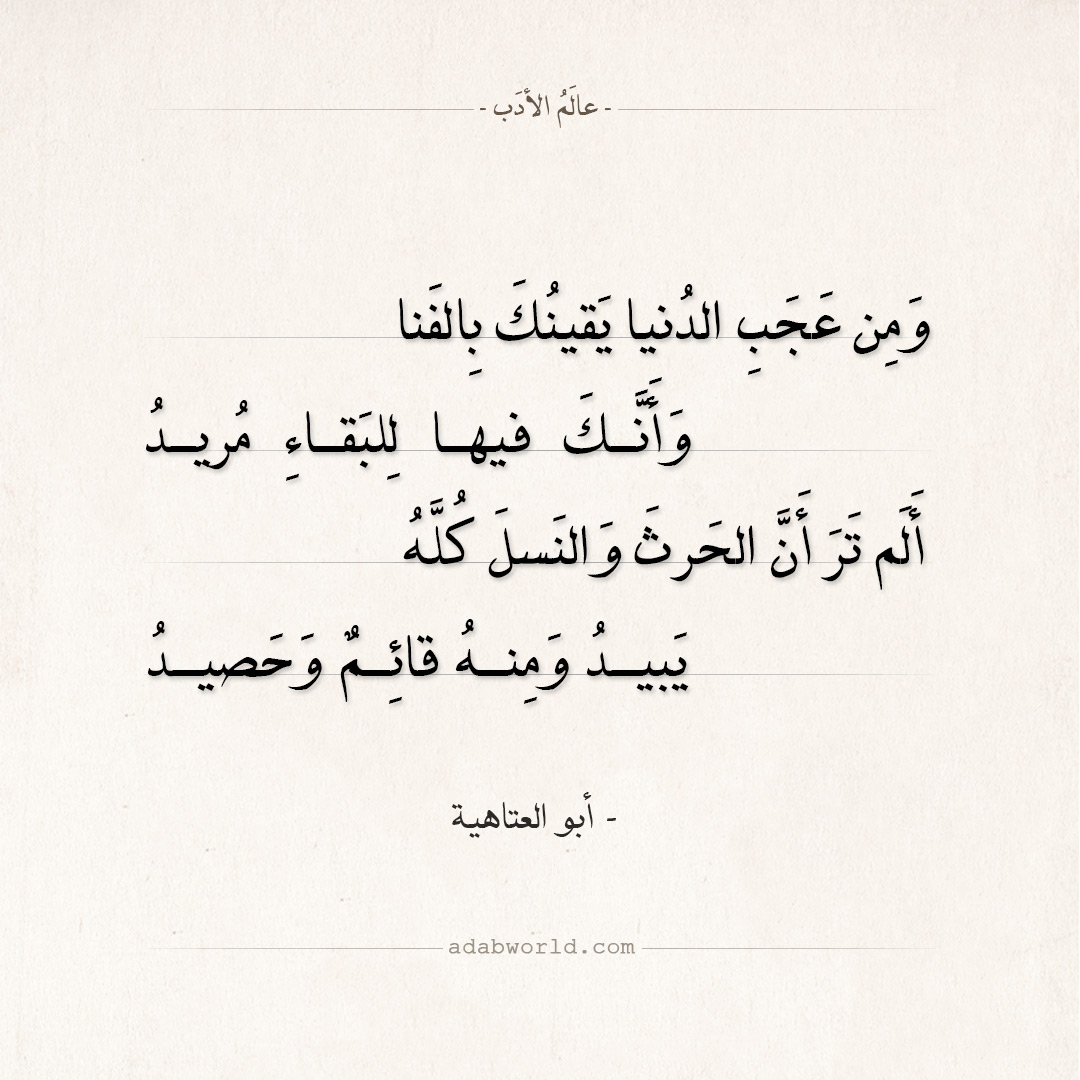 - عالَمُ الأدَب -
وَمِن عَجَبِ الدُنيا يَقينُكَ بِالفَنا
وَأَنَّـكَ فيهـا لِلبَقـاءِ مُريـدُ
أَلَم تَرَ أَنَّ الحَرثَ وَالنَسلَ كُلَّهُ
يَبيـدُ وَمِنـهُ قائِـمٌ وَحَصيـدُ
- أبو العتاهية
adabworld.com